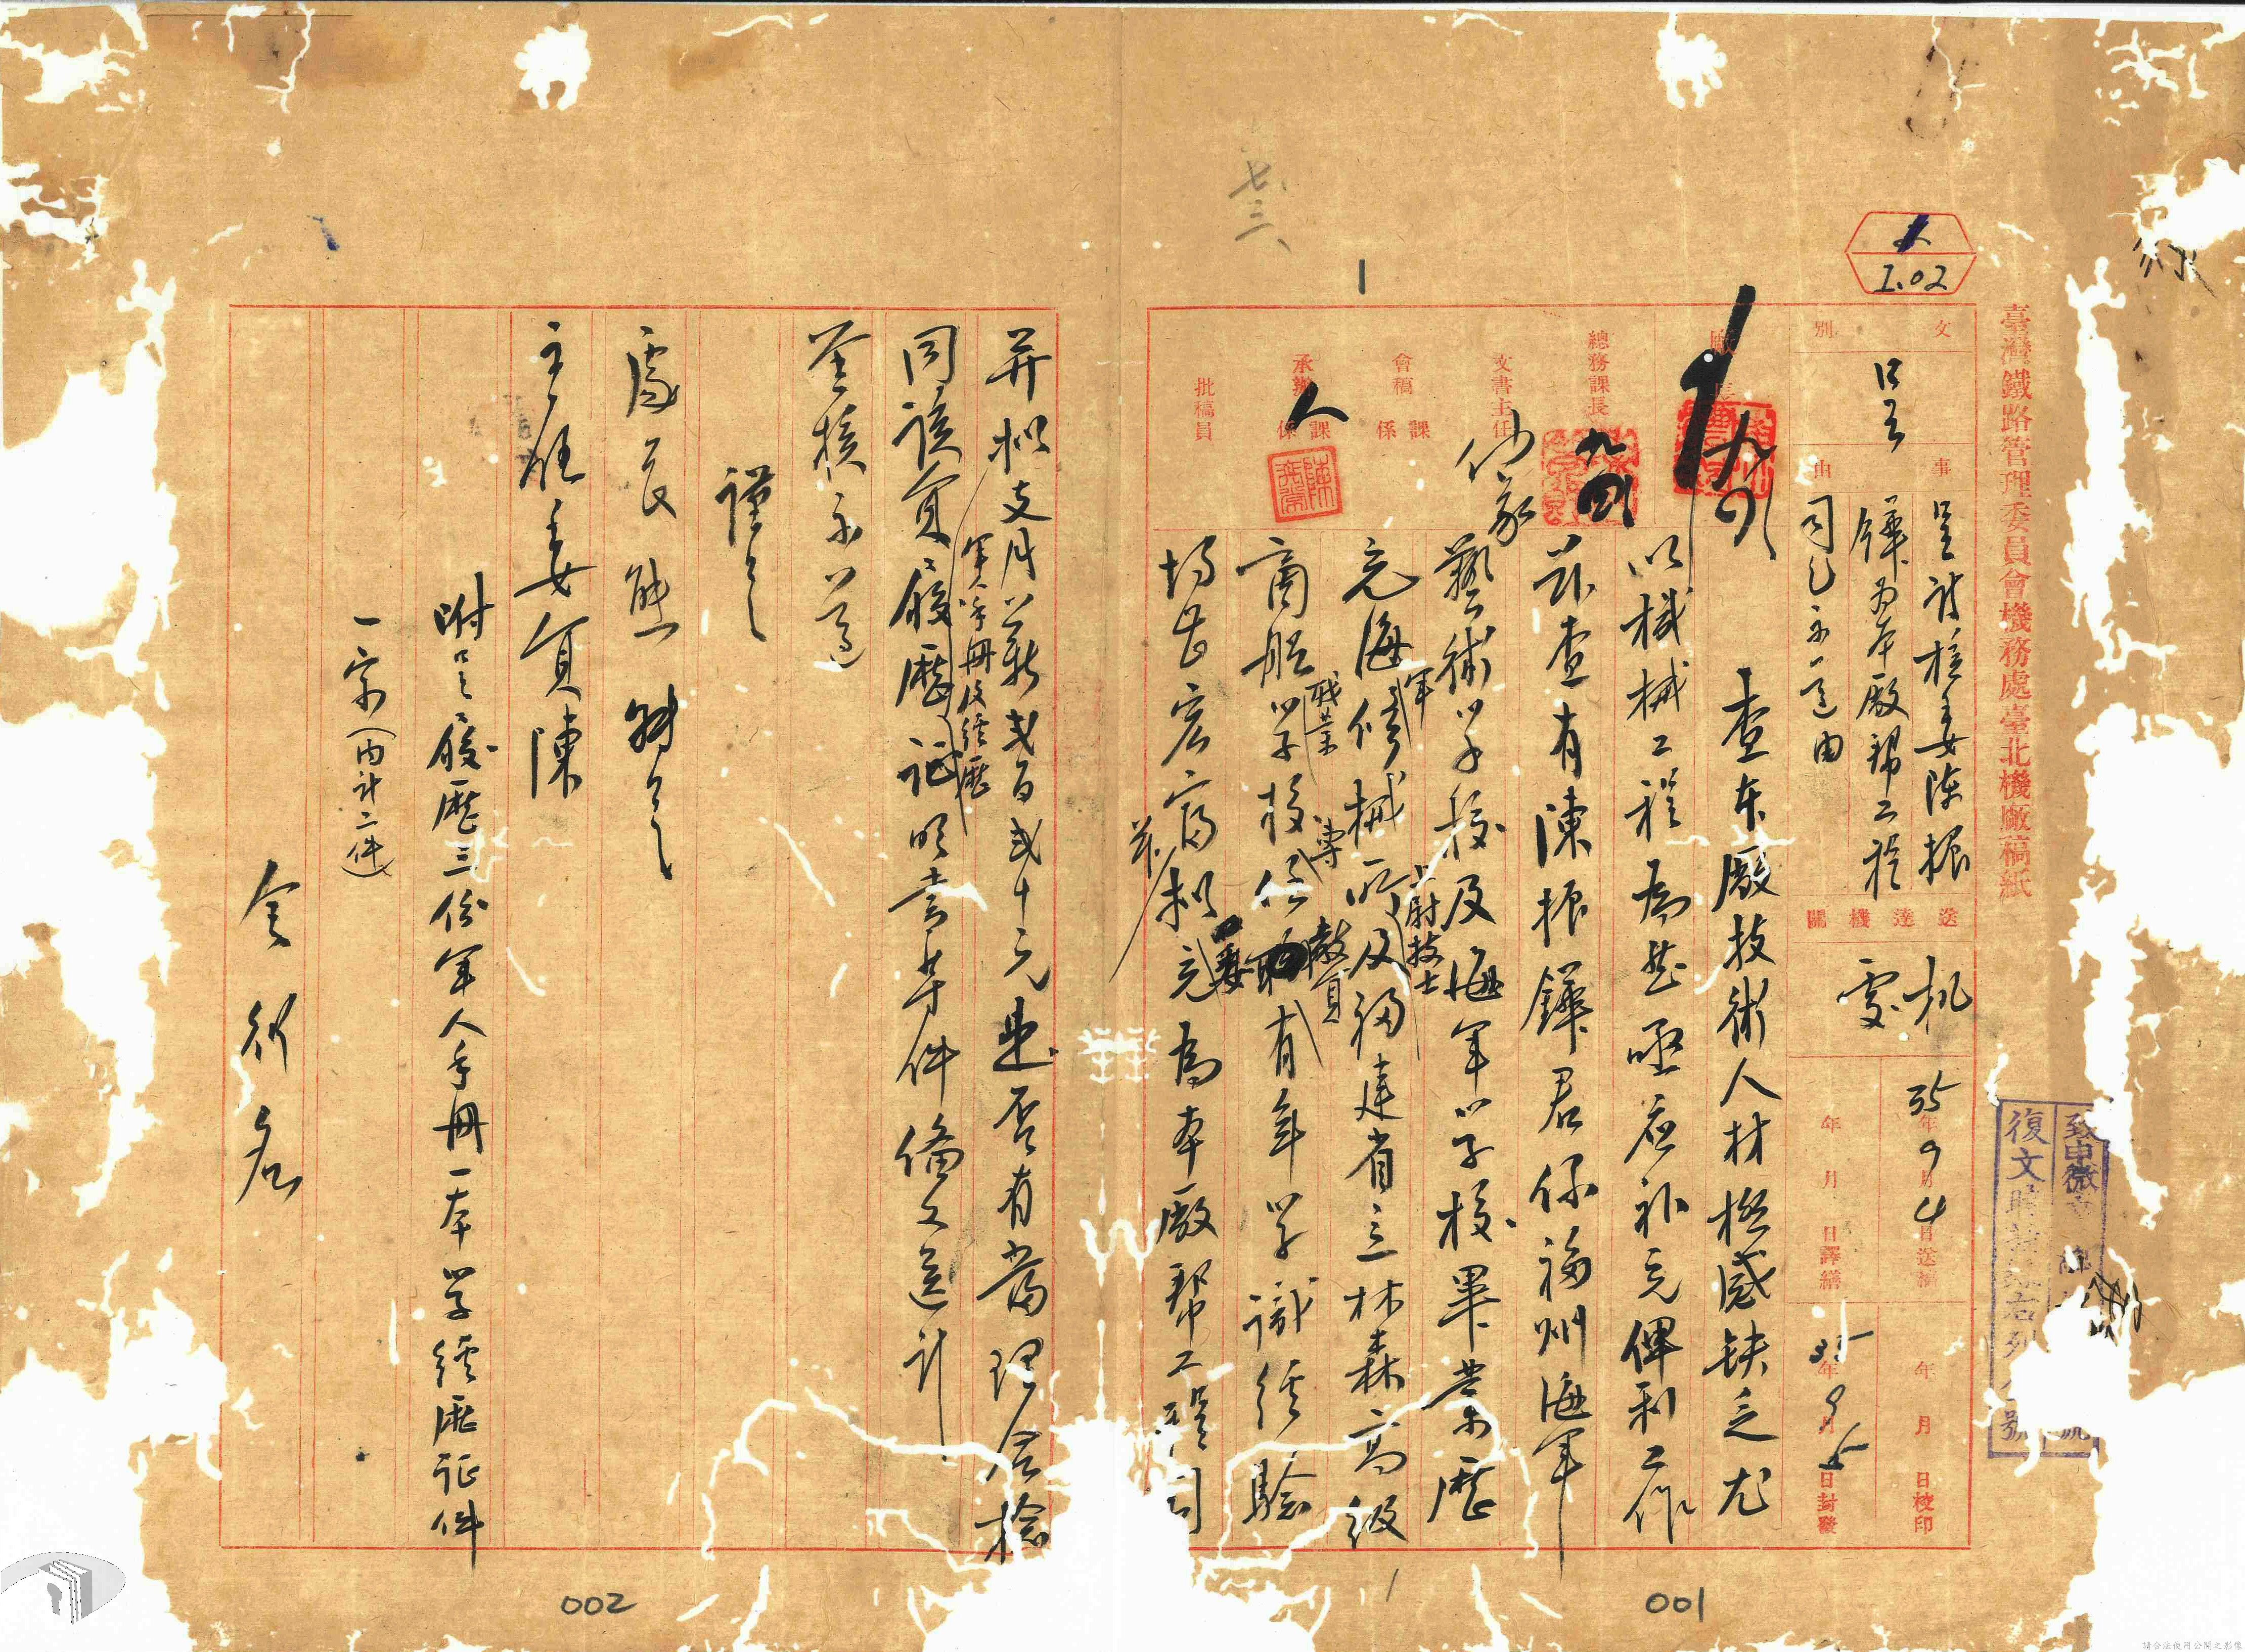 臺灣鐵路管理委員會機務處臺北機廠稿紙
1.02
七.三、
文別
呈
事由
呈請核委陳振
鏵為本廠幫工程
司乞示遵由
送達機關
机
處
35年9月4日送稿
年月日譯繕
年月日校印
35年9月5日封發
廠長
總務課長
文書主任
會稿
課係
承辦
課係
批稿員
九四
查本廠技術人材極感缺乏尤
以機械工程為甚亟應補充俾利工作
茲查有陳振鏵君係福州海軍
藝術學校及海軍學校畢業歷
充海軍修械所上尉技士及福建省立林森高級
商船職業學校專任教員有年學識經驗
均甚宏富擬委充為本廠幫工程司
并擬支月薪弍百弍十元是否有當理合檢
同該員履歷軍人手冊及經歷證明書等件備文送請
鑒核示遵
謹呈
處長
主任委員陳
附呈履歷三份軍人手冊一本學經歷证件
一宗(內計二件)
全銜名
復文
號
001
002
請合法使用公開之影像